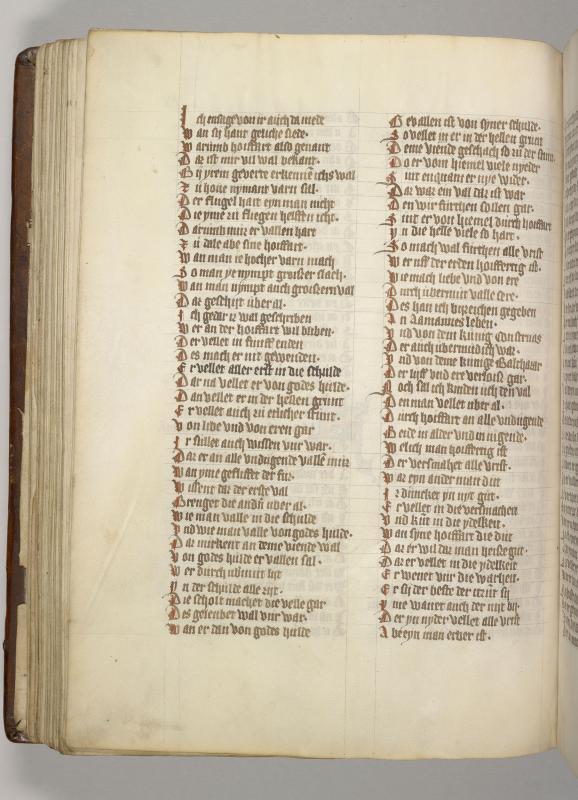 Ich ensage von ir auch da mede
Wan sij hant geliche siede.
Warumb hoiffart also genant
Daz ist mir vil wal bekant.
Bij yrem geverte erkenne ichs wal
Zu houe nymant varn sal.
Der flugel hait eyn man nicht
Die yme zu fliegen helffen icht.
Darumb muz er vallen hart
Zu dale abe sine hoiffart.
Wan man ie hocher varn mach
So man ye nympt groißer slach.
Wan man nympt auch groißern val
Daz geschijt uber al.
Ich gedar uch wal geschriben
Wer an der hoiffart wil bliben.
Der vellet in funff enden
Des mach er nit gewenden.
Er vellet aller erst in die schulde
Dar na vellet er von godes hulde.
Dan vellet er in der hellen grunt
Er vellet auch zu etlicher stunt.
Von libe vnd von eren gar
Ir sullet auch wissen vur war.
Daz er an alle vndugende vallen muz
Wan yme geflisset der fuz.
Wissent daz der erste val
Brenget die andern uber al.
Wie man valle in die schulde
Vnd wie man valle von godes hulde.
Daz mirkent an deme viende wal
Von godes hulde er vallen sal.
Wer durch ubermut lijt
Yn der schulde alle zijt.
Die scholt machet die velle gar
Des geleuber wal vur war.
Wan er dan von godes hulde
Gevallen ist von syner schulde.
So vellet in er in der hellen grunt
Deme viende geschach so zu der stunt.
Do er vom hiemel viele nyeder
Sint enquam er nye wider.
Daz war ein val daz ist war
Den wir furchten sollen gar.
Sint er von hiemel durch hoiffart
Yn die helle viele so hart.
So mach wal furchen alle vrist
Wer uff der erden hoiffertig ist.
Wie mach liebe vnd von ere
Durch ubermut valle sere.
Des han ich bizeichen gegeben
An Lamantes leben.
Vnd von dem kunig Consernas
Der auch ubermudich was.
Vnd von deme kunige Balthazar
Der lijff vnd ere verloiß gar.
Noch sal ich kunden uch den val
Den man vellet uber al.
Durch hoiffart an alle vndugende
Beide in alder vnd in iugende.
Welich man hoifftig ist
Der versmahet alle vrist.
Waz eyn ander man dut
Iz duncket yn nyt gut.
Er vellet in die versmachen
Vnd kumt in die ydelkeit.
Wan syne hoiffart die dut
Daz er wil daz man heiße gut.
Daz er vellet in die ydelkeit
Er wenet vur die warheit.
Er sij der beste der umer sij
Yme wanet auch der nijt bij.
Der yn nyder vellet alle vrist
Abe eyn man erber ist.